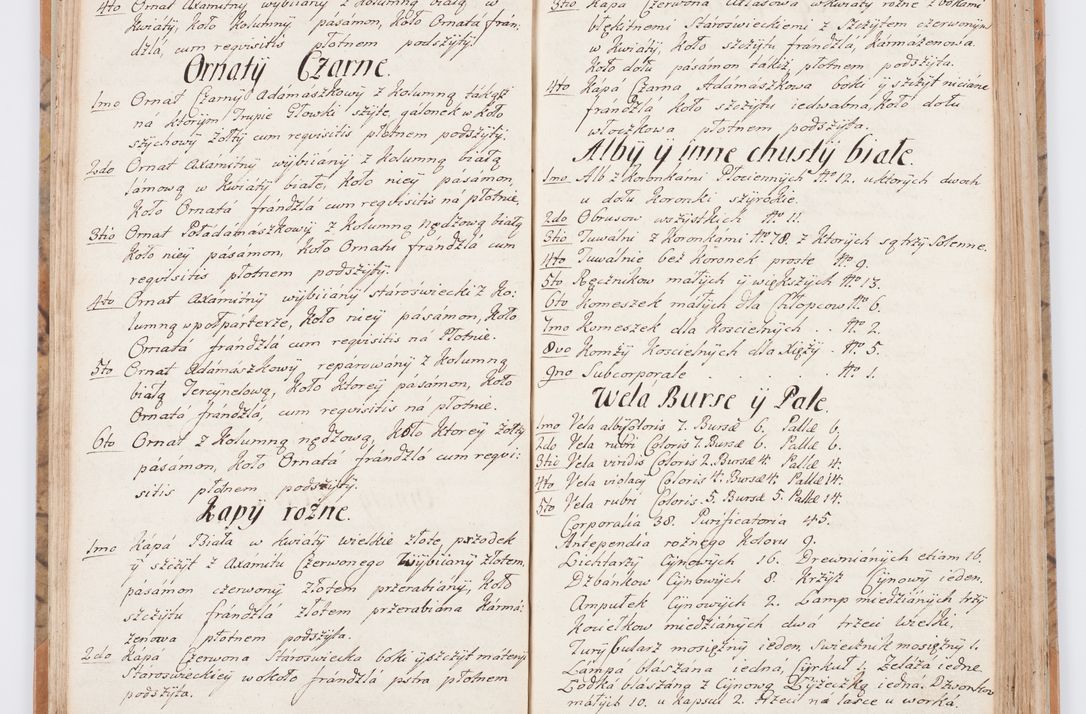 4to Ornat Axamitny wybiiany z Kolumną białą w
kwiaty, koło Kolumny pasamon, koło Ornata fran-
dzla, cum reqvisitis płotnem podszyty.
Ornaty Czarne.
1mo Ornat Czarny Adamaszkowy z Kolumną takąż
na ktorym Trupie Głowki szyte, galonek w koło
szychowy żołty cum reqvisitis płotnem podszyty.
2do Ornat Axamitny wybiiany z Kolumną białą
lamową w kwiaty białe, koło niey pasamon,
koło Ornata frandzla cum reqvisitis na płotnie,
3tio Ornat Poładamaszkowy z Kolumną nędzową białą
koło niey pasamon, koło Ornatu frandzla cum
reqvisitis płotnem podszyty.
4to Ornat Axamitny wybiiany staroswiecki z Ko:
lumną w połparterze, koło niey pasamon, koło
Ornata frandzla cum reqvisitis na Płotnie.
5to Ornat Adamaszkowy reparowany z Kolumną
białą Tercynelową, koło ktorey pasamon, koło
Ornata frandzla, cum reqvisitis na płotnie.
6to Ornat z Kolumną nędzową, koło ktorey żołty
pasamon, koło Ornata frandzla cum reqvi:
sitis płotnem podszyty.
Kapy rożne.
1mo Kapa Biała w kwiaty wielkie złote, przodek
y szczyt z Axamitu Czerwonego wybiiany złotem,
pasamon czerwony złotem przerabiany, koło
szczytu frandzla złotem przerabiana Karma:
zenowa płotnem podszyta.
2do Kapa Czerwona Staroswiecka boki y szczyt materyi
Staroswieckiey wokoło frandzla pstra płotnem
podszyta.
3tio Kapa Czerwona Atłasowa w kwiaty rożne z bokami
błękitnemi Staroswieckiemi z Szczytem czerwonym
w kwiaty, koło szczytu frandzla, Karmazenowa
koło dołu pasamon takiż płotnem podszyta.
4to Kapa Czarna Adamaszkowa boki y szczyt niciane
frandzla koło szczytu iedwabna, koło dołu
włoczkowa płotnem podszyta.
Alby y inne chusty białe.
1mo Alb z Koronkami Płociennych Nro 12. u ktorych dwoch
u dołu Koronki szyrokie.
2do Obrusow wszistkich Nro 11.
3tio Tuwalni z Koronkami Nro 78. z ktorych są trzy Solenne.
4to Tuwalnie bez Koronek proste Nro 9.
5to Ręcznikow małych y większych Nro 13.
6to Komeszek małych dla Chłopcow Nro 6.
7mo Komeszek dla Koscielnych . . Nro 2.
8vo Komży Koscielnych dla Xięży . Nro 5.
9no Subcorporale . . . . Nro 1.
Wela Burse y Pale.
1mo Vela albi Coloris 7. Bursæ 6. Pallæ 6.
2do Vela rubri Coloris 7. Bursæ 6. Pallæ 6.
3tio Vela viridis Coloris 2. Bursæ 4. Pallæ 4.
4to Vela violacy Coloris 4. Bursæ 4. Pallæ 14.
5to Vela rubri Coloris. 5. Bursæ 5. Pallæ 14.
Corporalia 38. Purificatoria 45.
Antependia rożnego Koloru 9.
Lichtarzy Cynowych 16. Drewnianych etiam 16.
Dzbankow Cynowych 8. Krzyż Cynowy ieden.
Ampułek Cynowych 2. Lamp miedzianych trzy
Kociełkow miedzianych dwa trzeci wielki.
Turybularz mosiężny ieden, Swiecznik mosiężny 1.
Lampa blaszana iedna, Cyrkuł 1. Żelaza iedne
Łodka blaszana z Cynową Łyżeczką iedna. Dzwonkow
małych 10. u kapsuł 2. trzeci na lasce u worka.